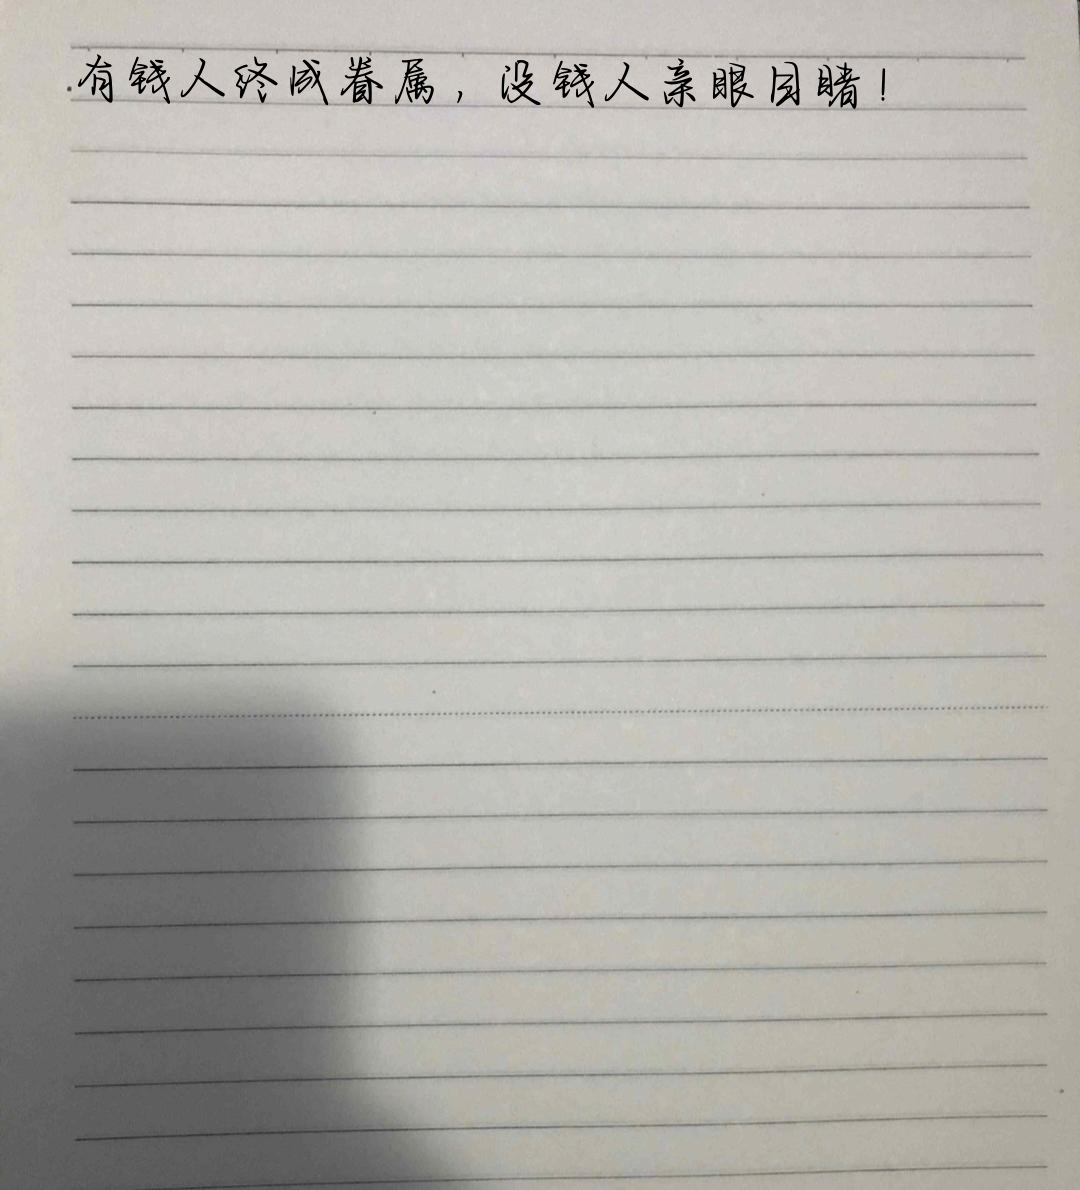 有钱人终成眷属，没钱人亲眼目睹！